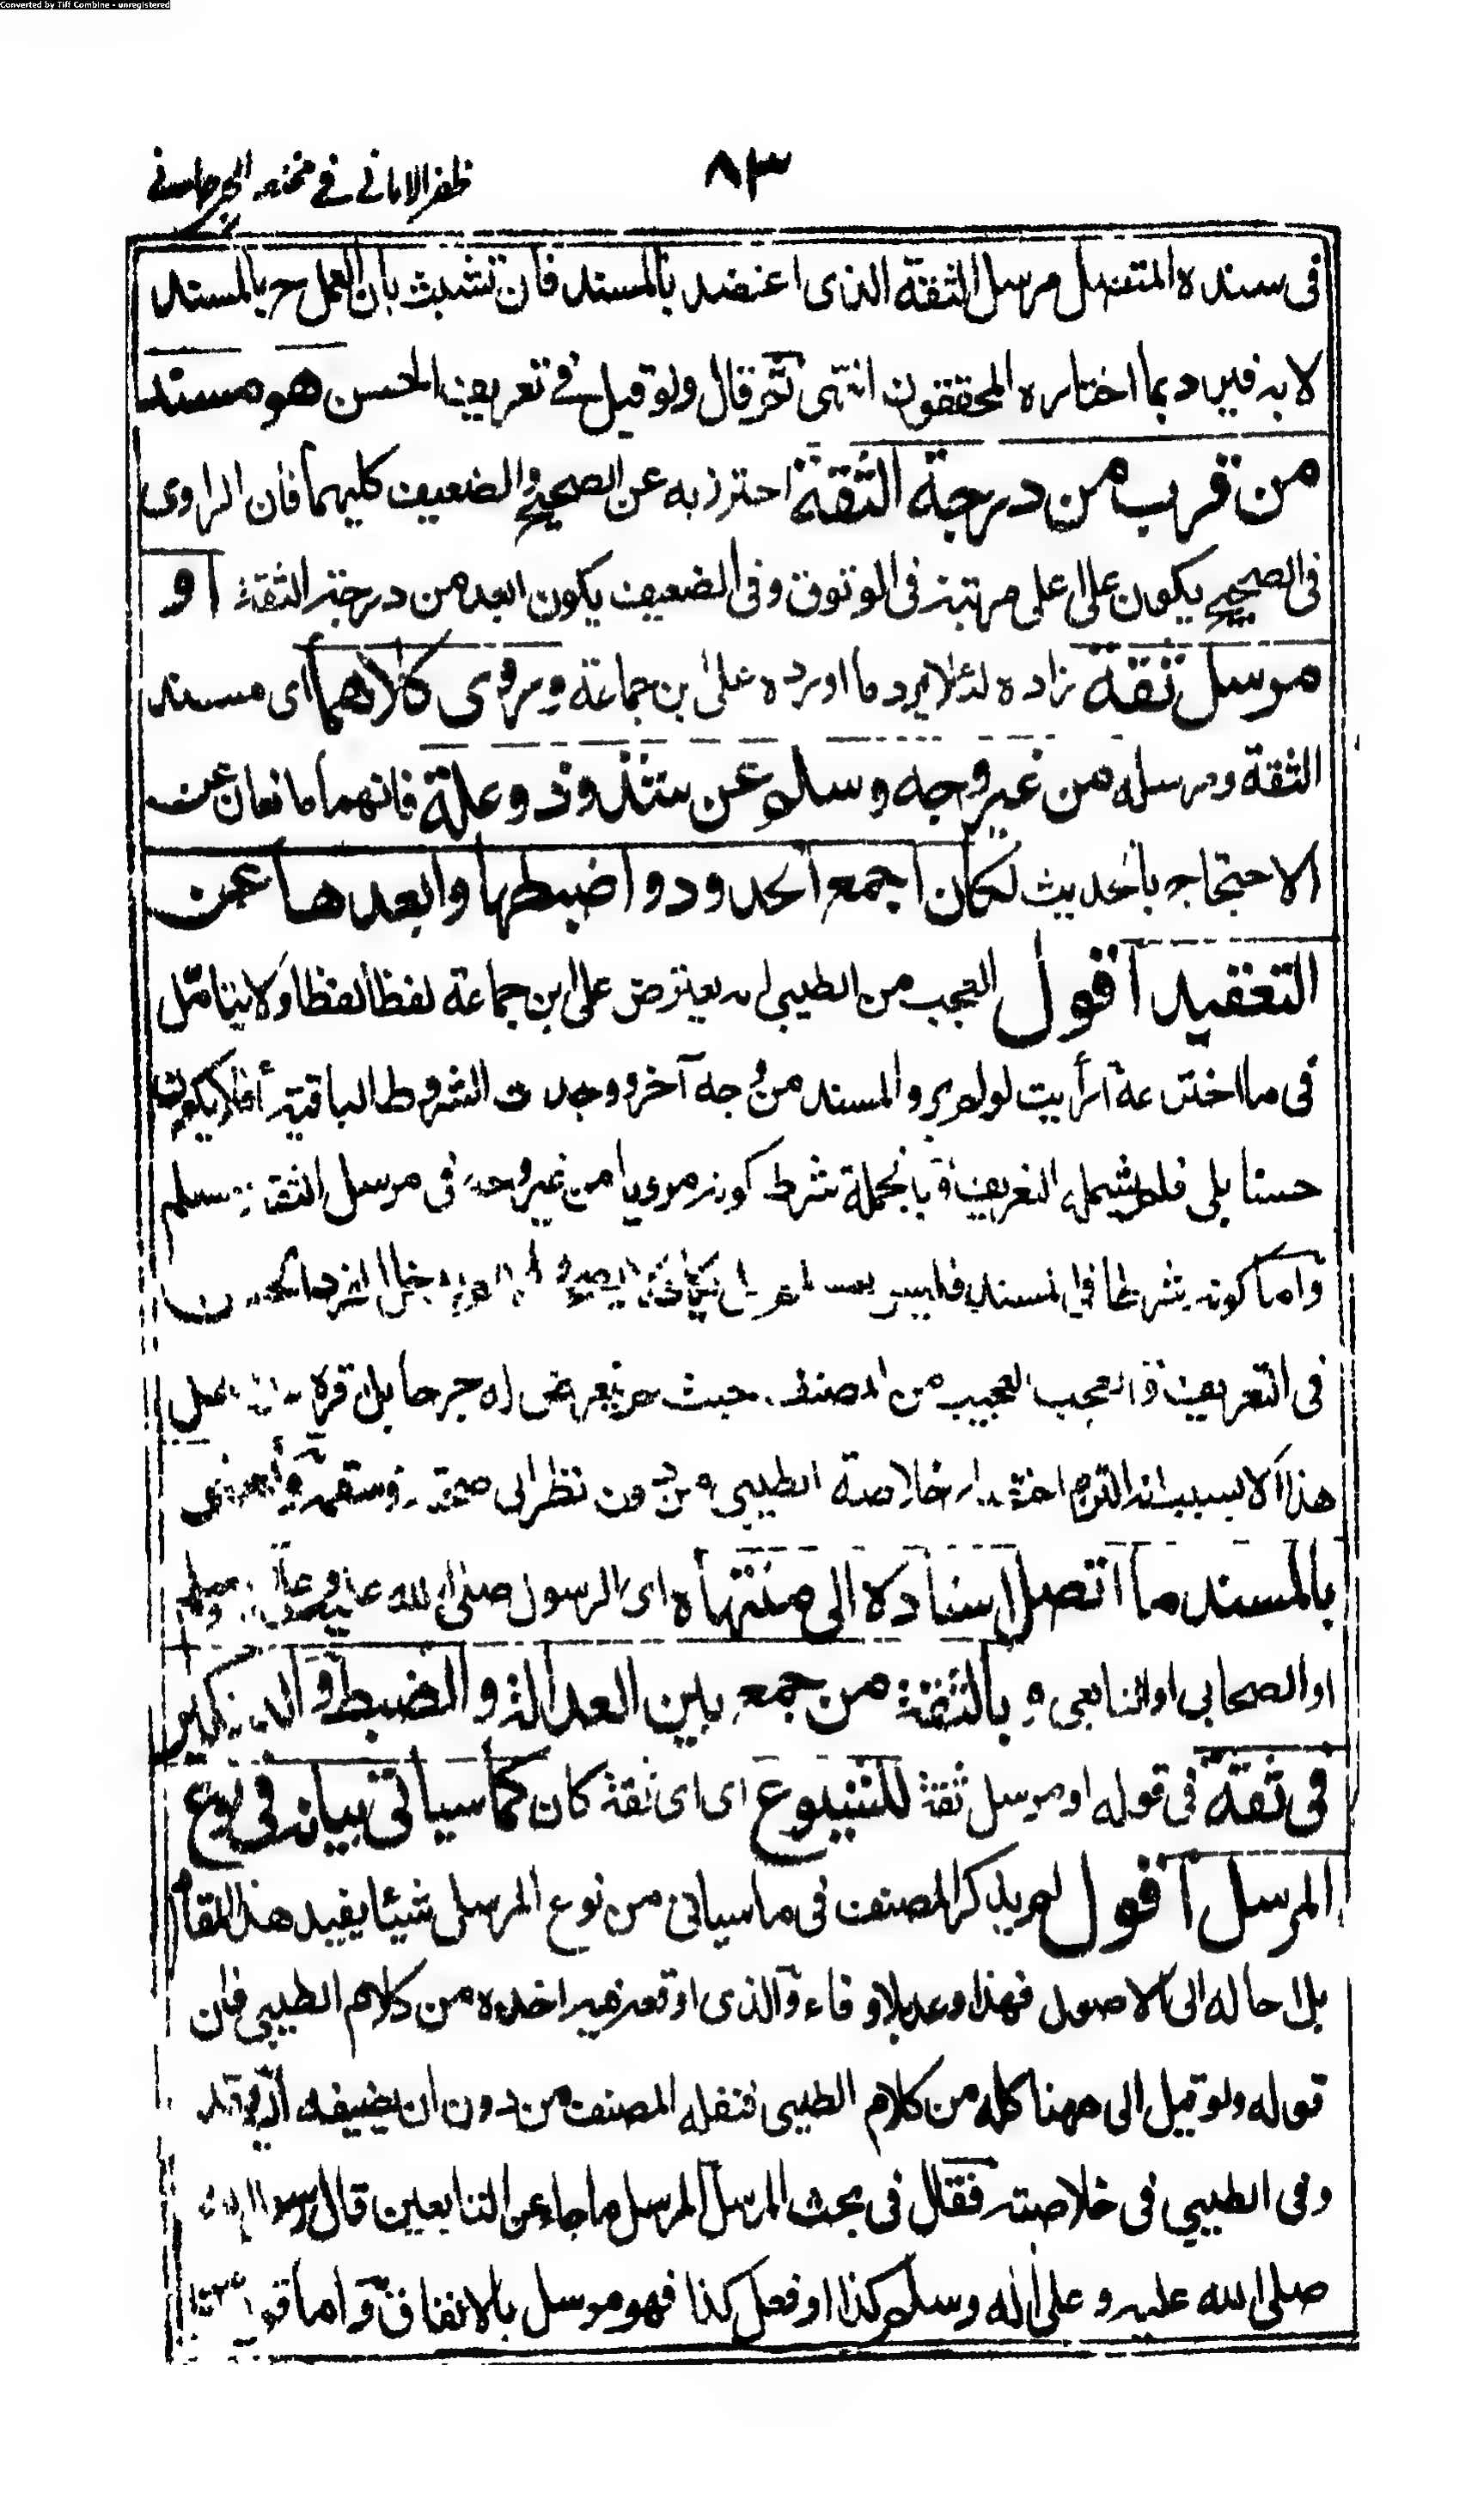 Converted by Tiff Combine - unregistered
٨٣
ظفر الامانى فى مختصر الجرجانى
فى سنده المتصل مرسل الثقة الذى اعتضد بالمسند فان تشبث بان العمل ح بالمسند
لا به فيرد بما اختاره المحققون انتهى ثم قال ولو قيل فى تعريف الحسن هو مسند
من قرب من درجة الثقة احترز به عن الصحيح والضعيف كليهما فان الراوى
فى الصحيح يكون على اعلى مرتبة فى الوثوق وفى الضعيف يكون ابعد من درجة الثقة او
مرسل ثقة زاده لئلا يرد ما اورده على ابن جماعة وروى كلاهما اى مسند
الثقة ومرسله من غير وجه وسلم عن شذوذ وعلة فانهما مانعان عن
الاحتجاج بالحديث لكان اجمع الحدود واضبطها وابعدها عن
التعقيد اقول العجب من الطيبى انه يعترض على ابن جماعة لفظا لفظا ولا يتامل
فى ما اخترعه أرأيت لو لم يرو المسند من وجه آخر ووجدت الشروط الباقية أفلا يكون
حسنا بلى فلم يشمله التعريف وبالجملة شرط كونه مرويا من غير وجه فى مرسل الثقة مسلم
واما كونه شرطا فى المسند فليس
فى التعريف والعجب العجيب من المصنف حيث
هذا الا بسبب انه التزم اختصار خلاصة الطيبى من دون نظر الى صحته وسقمه
بالمسند ما اتصل اسناده الى منتهاه اى الرسول صلى الله عليه وعلى وسلم
او الصحابى او التابعى و بالثقة من جمع بين العدالة والضبط والتنكير
فى ثقة فى قوله او مرسل ثقة للشيوع اى اى ثقة كان كما سياتى بيانه فى نوع
المرسل اقول لم يذكر المصنف فى ما سياتى من نوع المرسل شيئا يفيد هذا المقام
بل احاله الى الاصول فهذا وعد بلا وفاء والذى اوقعه فيه اخذه من كلام الطيبى فان
قوله ولو قيل الى ههنا كله من كلام الطيبى فنقله المصنف من دون ان يضيفه اليه وقد
وفى الطيبى فى خلاصته فقال فى بحث المرسل المرسل ما جاء عن التابعين قال رسول الله
صلى الله عليه وعلى اله وسلم كذا او فعل كذا فهو مرسل بالاتفاق واما